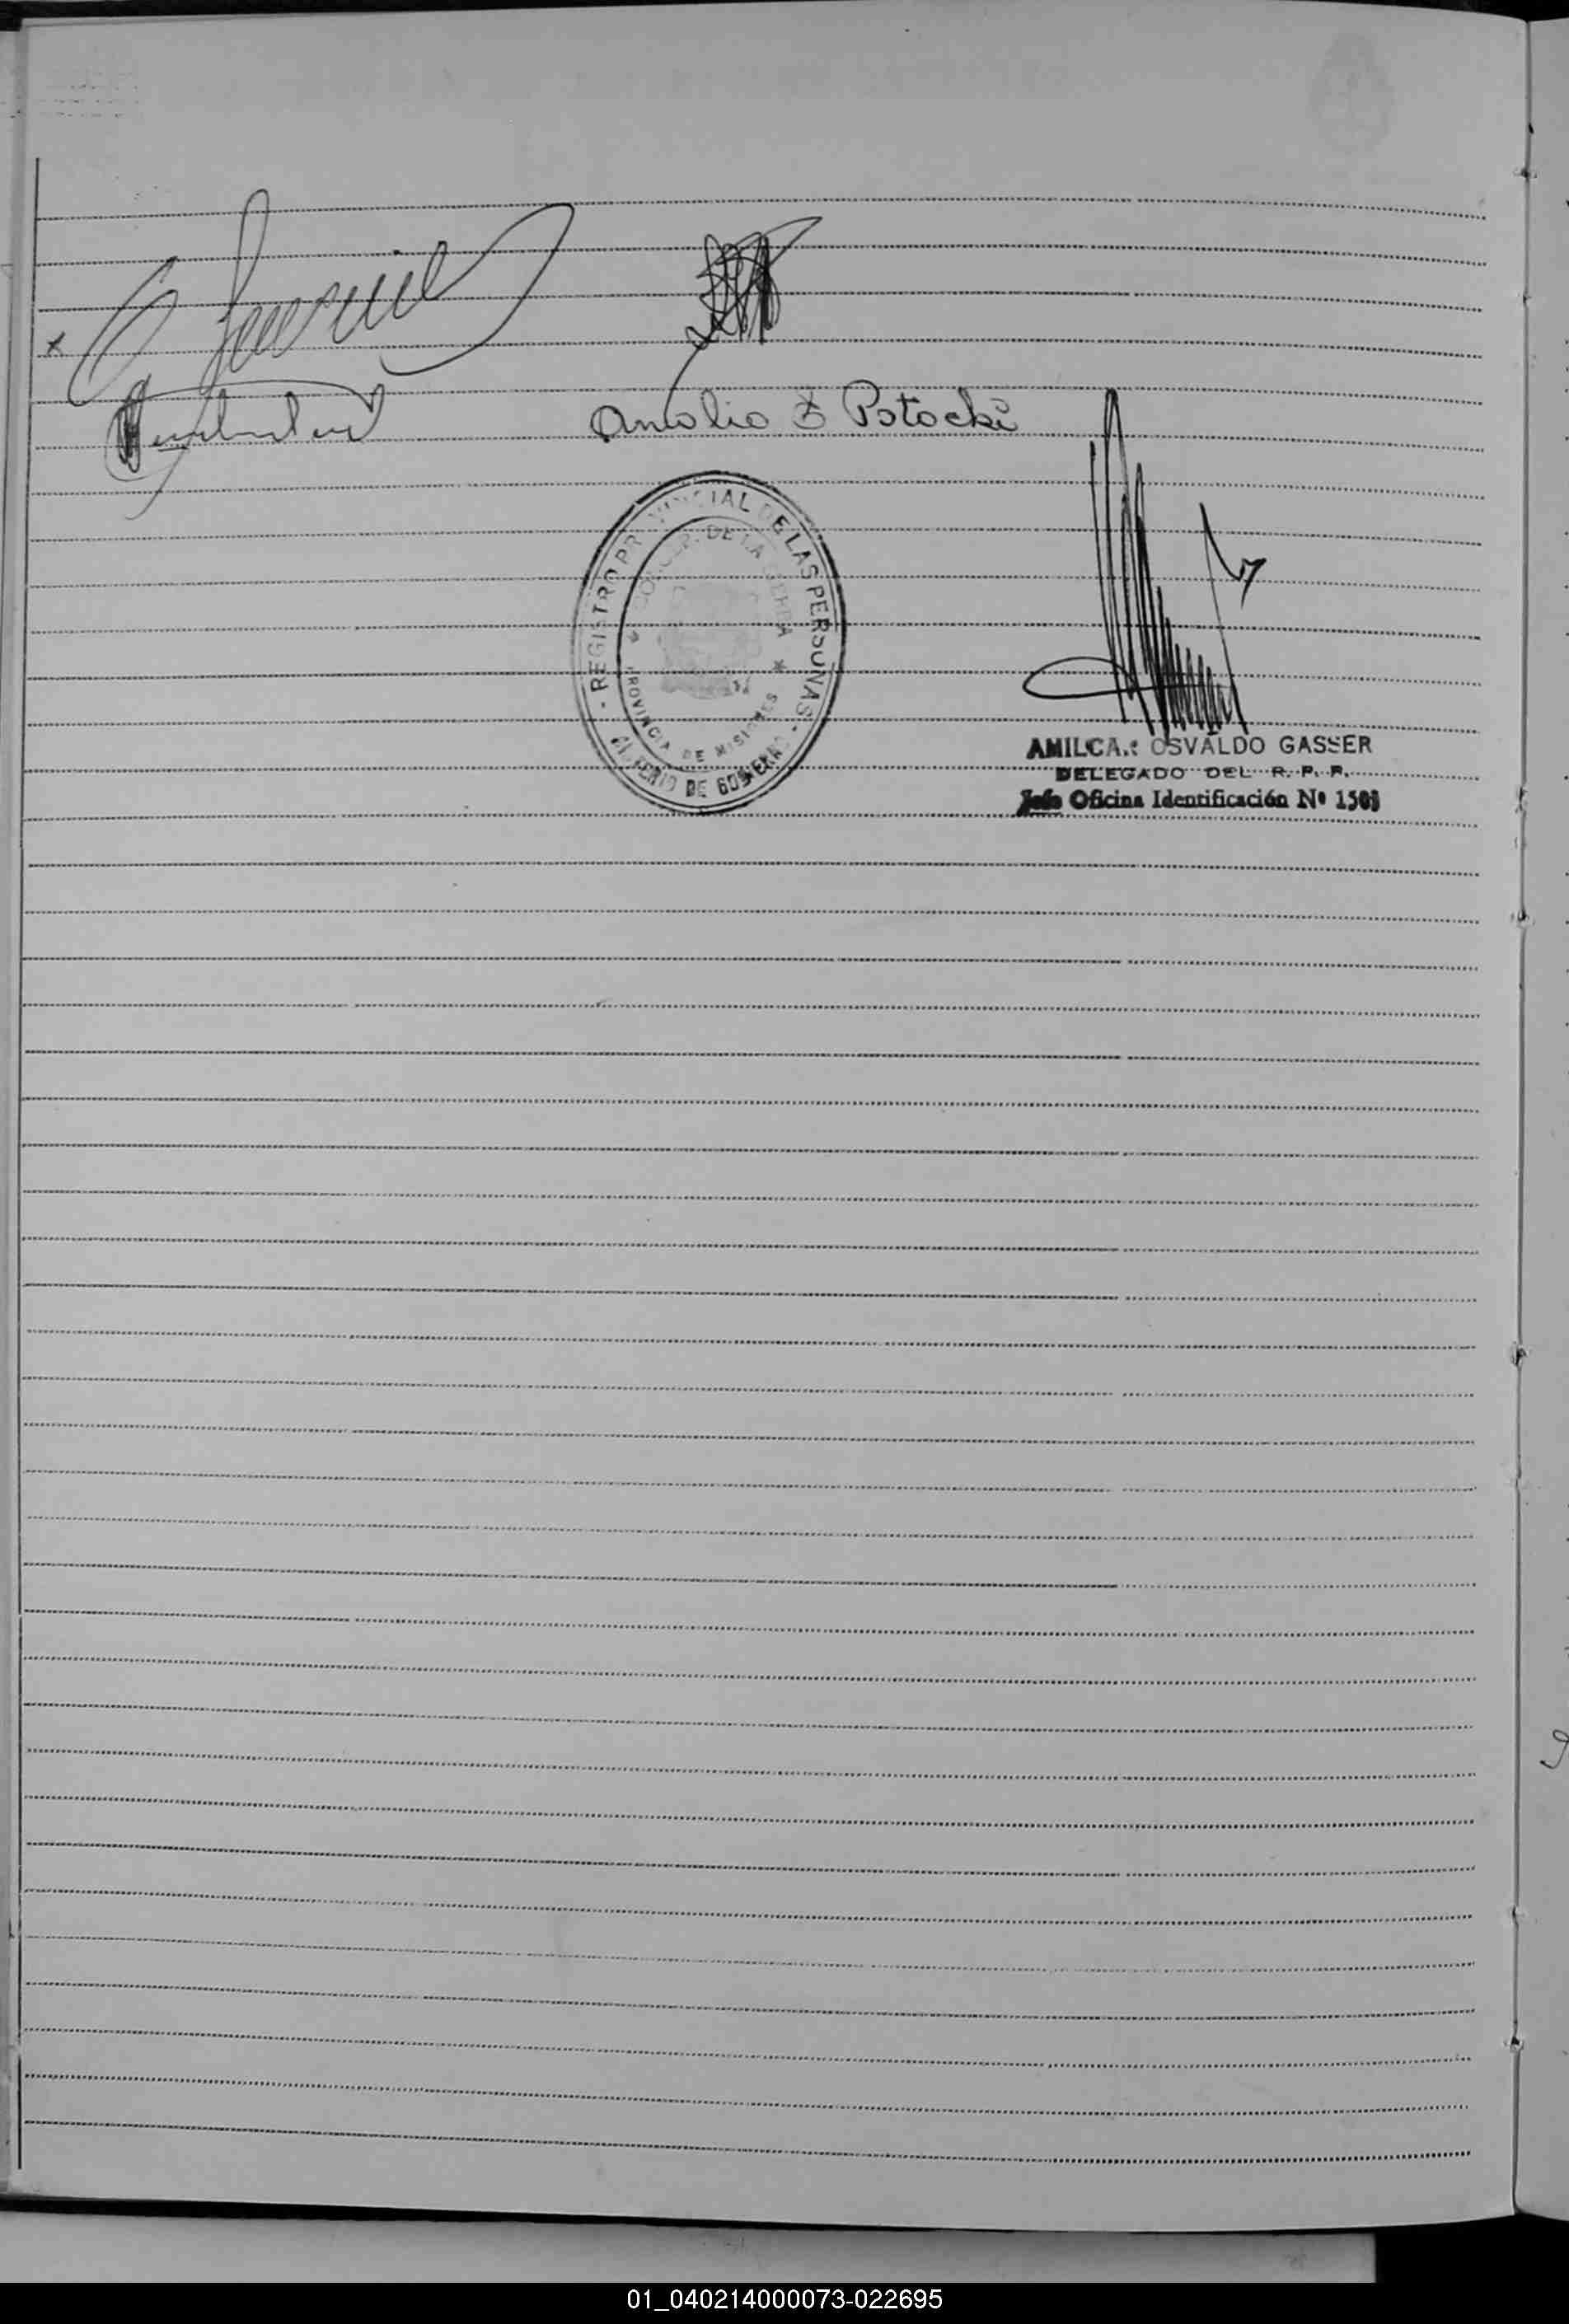 x
Amalia E Potocki
REGISTRO PROVINCIAL DE LAS PERSONAS
CONCEP. DE LA SIERRA
PROVINCIA DE MISIONES
MINISTERIO DE GOBIERNO
AMILCAR OSVALDO GASSER
DELEGADO DEL R. P. P.
Jefe Oficina Identificación Nº 1503
01_040214000073-022695